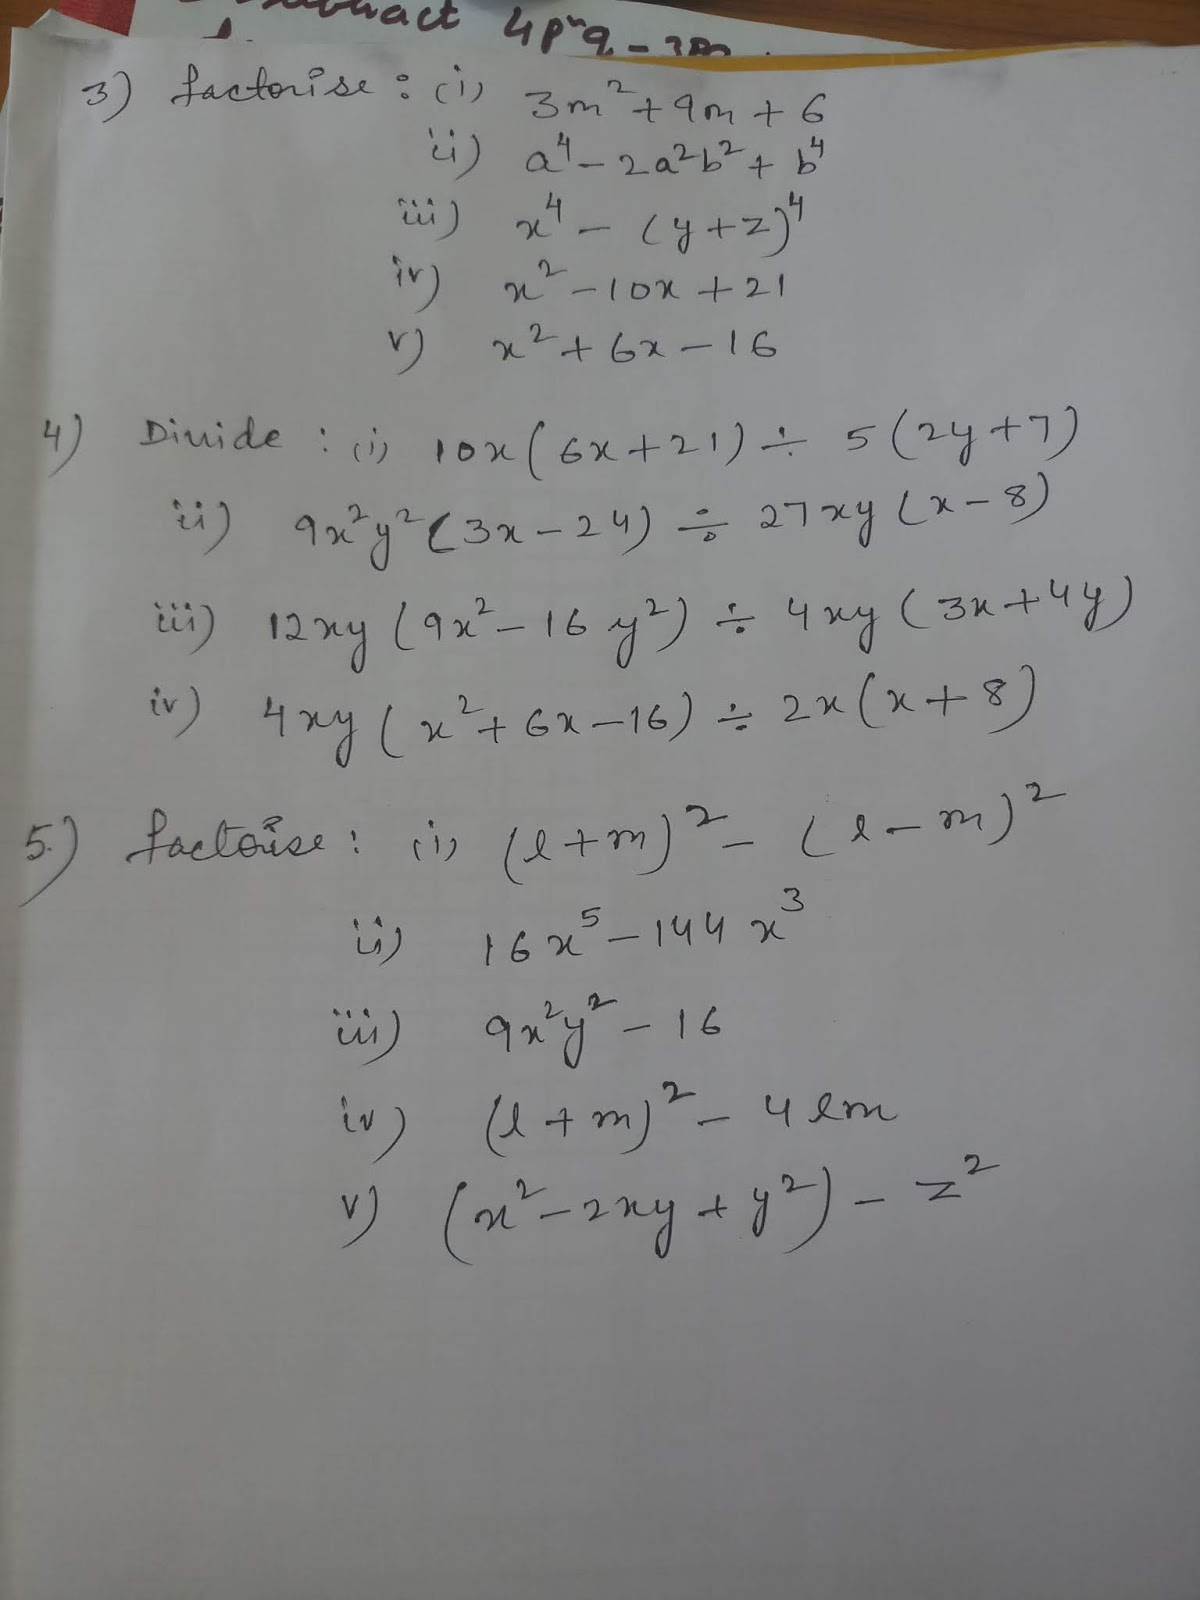 subtract 4p²q - 3p
3) factorise : (i) 3m² + 9m + 6
ii) a⁴ - 2a²b² + b⁴
iii) x⁴ - (y + z)⁴
iv) x² - 10x + 21
v) x² + 6x - 16
4) Divide : (i) 10x (6x + 21) ÷ 5 (2y + 7)
ii) 9x²y² (3x - 24) ÷ 27xy (x - 8)
iii) 12xy (9x² - 16y²) ÷ 4xy (3x + 4y)
iv) 4xy (x² + 6x - 16) ÷ 2x (x + 8)
5.) factorise : (i) (l + m)² - (l - m)²
ii) 16x⁵ - 144x³
iii) 9x²y² - 16
iv) (l + m)² - 4lm
v) (x² - 2xy + y²) - z²